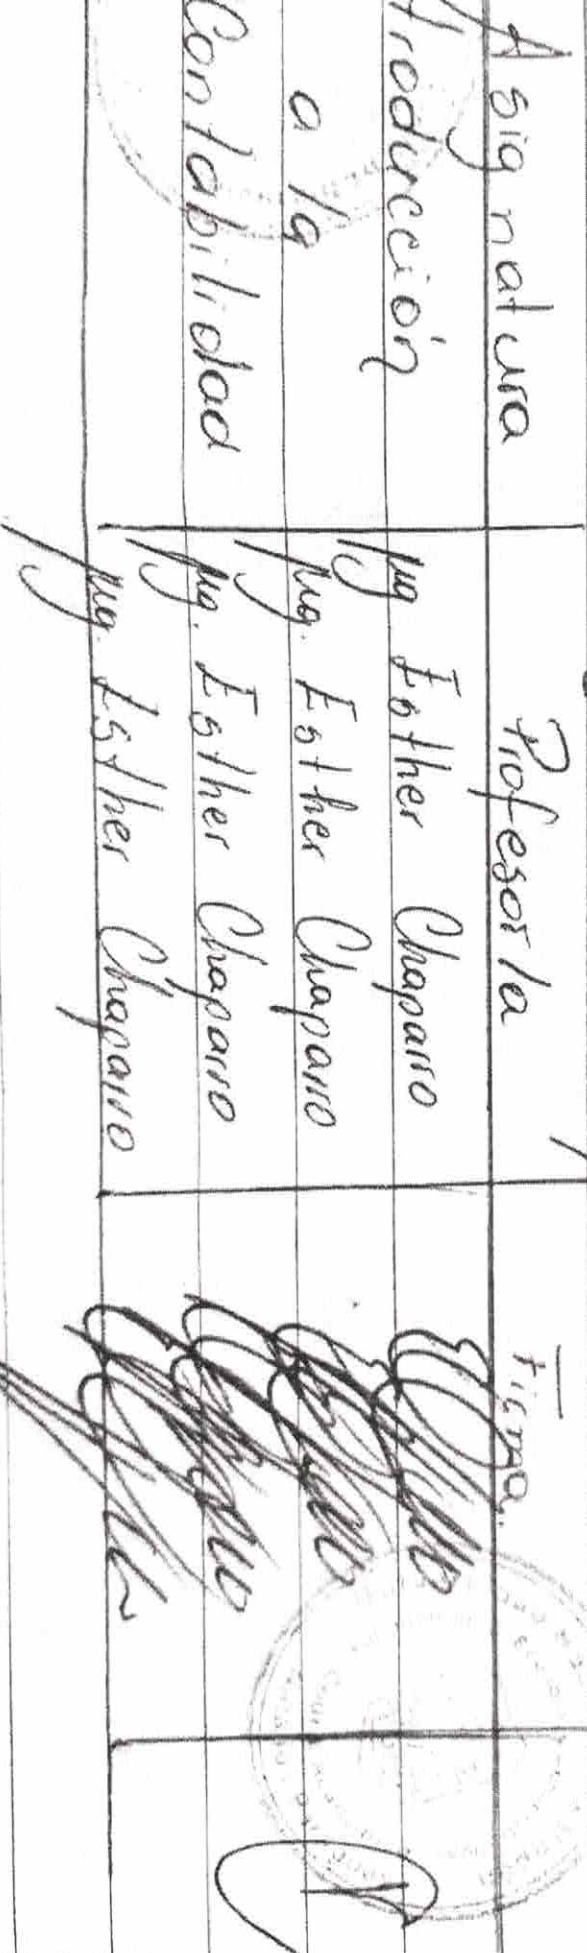 Asignatura Profesor/a Firma.
trodircción Mg Esther Chaparro
a la Mg. Esther Chaparro
Contabilidad Mg. Esther Chaparro
Mg. Esther Chaparro